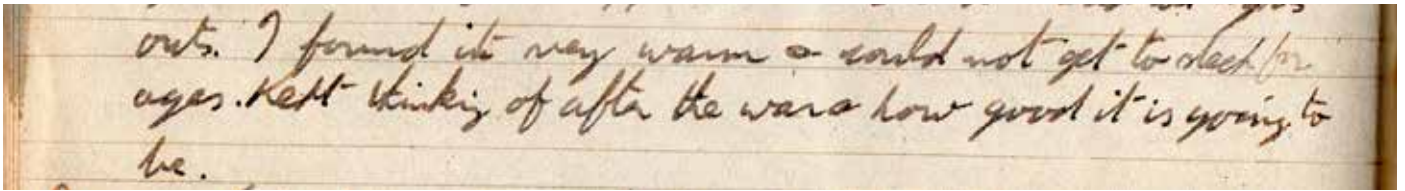 outs. I found it very warm & could not get to sleep for
ages. Kept thinking of after the war & how good it is going to
be.